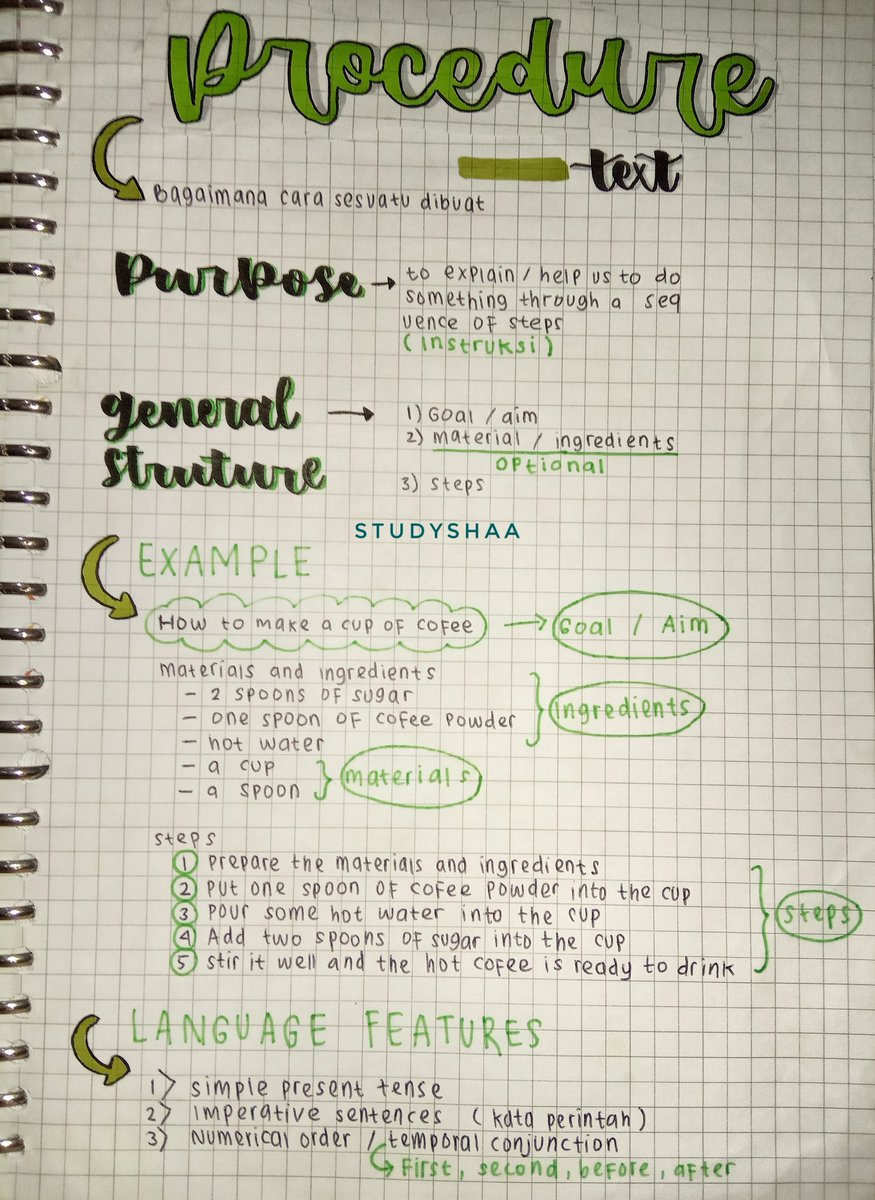 Procedure
text
Bagaimana cara sesuatu dibuat
purpose → to explain / help us to do
something through a seq
uence of steps
(instruksi)
general
struture → 1) Goal / aim
2) material / ingredients
optional
3) steps
STUDYSHAA
EXAMPLE
How to make a cup of cofee → Goal / Aim
materials and ingredients
- 2 spoons of sugar
- one spoon of cofee powder
- hot water
ingredients
- a cup
- a spoon
materials
steps
1 prepare the materials and ingredients
2 put one spoon of cofee powder into the cup
3 pour some hot water into the cup
4 Add two spoons of sugar into the cup
5 stir it well and the hot cofee is ready to drink
steps
LANGUAGE FEATURES
1> simple present tense
2> imperative sentences (kata perintah)
3> Numerical order / temporal conjunction
First, second, before, after